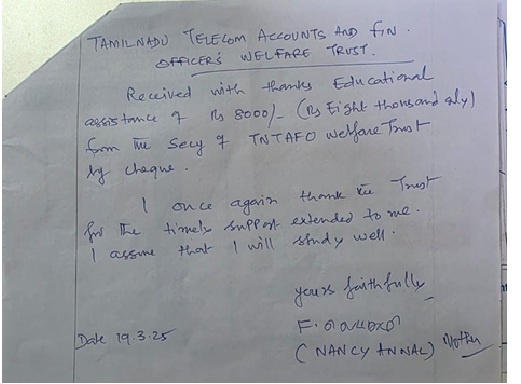 TAMILNADU TELECOM ACCOUNTS AND FIN.
OFFICER'S WELFARE TRUST.
Received with thanks Educational
assistance of Rs 8000/- (Rs Eight thousand only)
from the Secy of TNTAFO Welfare Trust
by cheque.
I once again thank the Trust
for the timely support extended to me.
I assume that I will study well.
yours faithfully
F.
Date 19.3.25
(NANCY ANNAL) Mother